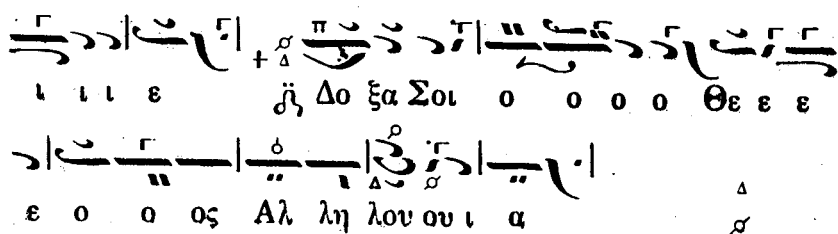 ι ι ι ε Δο ξα Σοι ο ο ο ο Θε ε ε
ε ο ο ος Αλ λη λου ου ι α